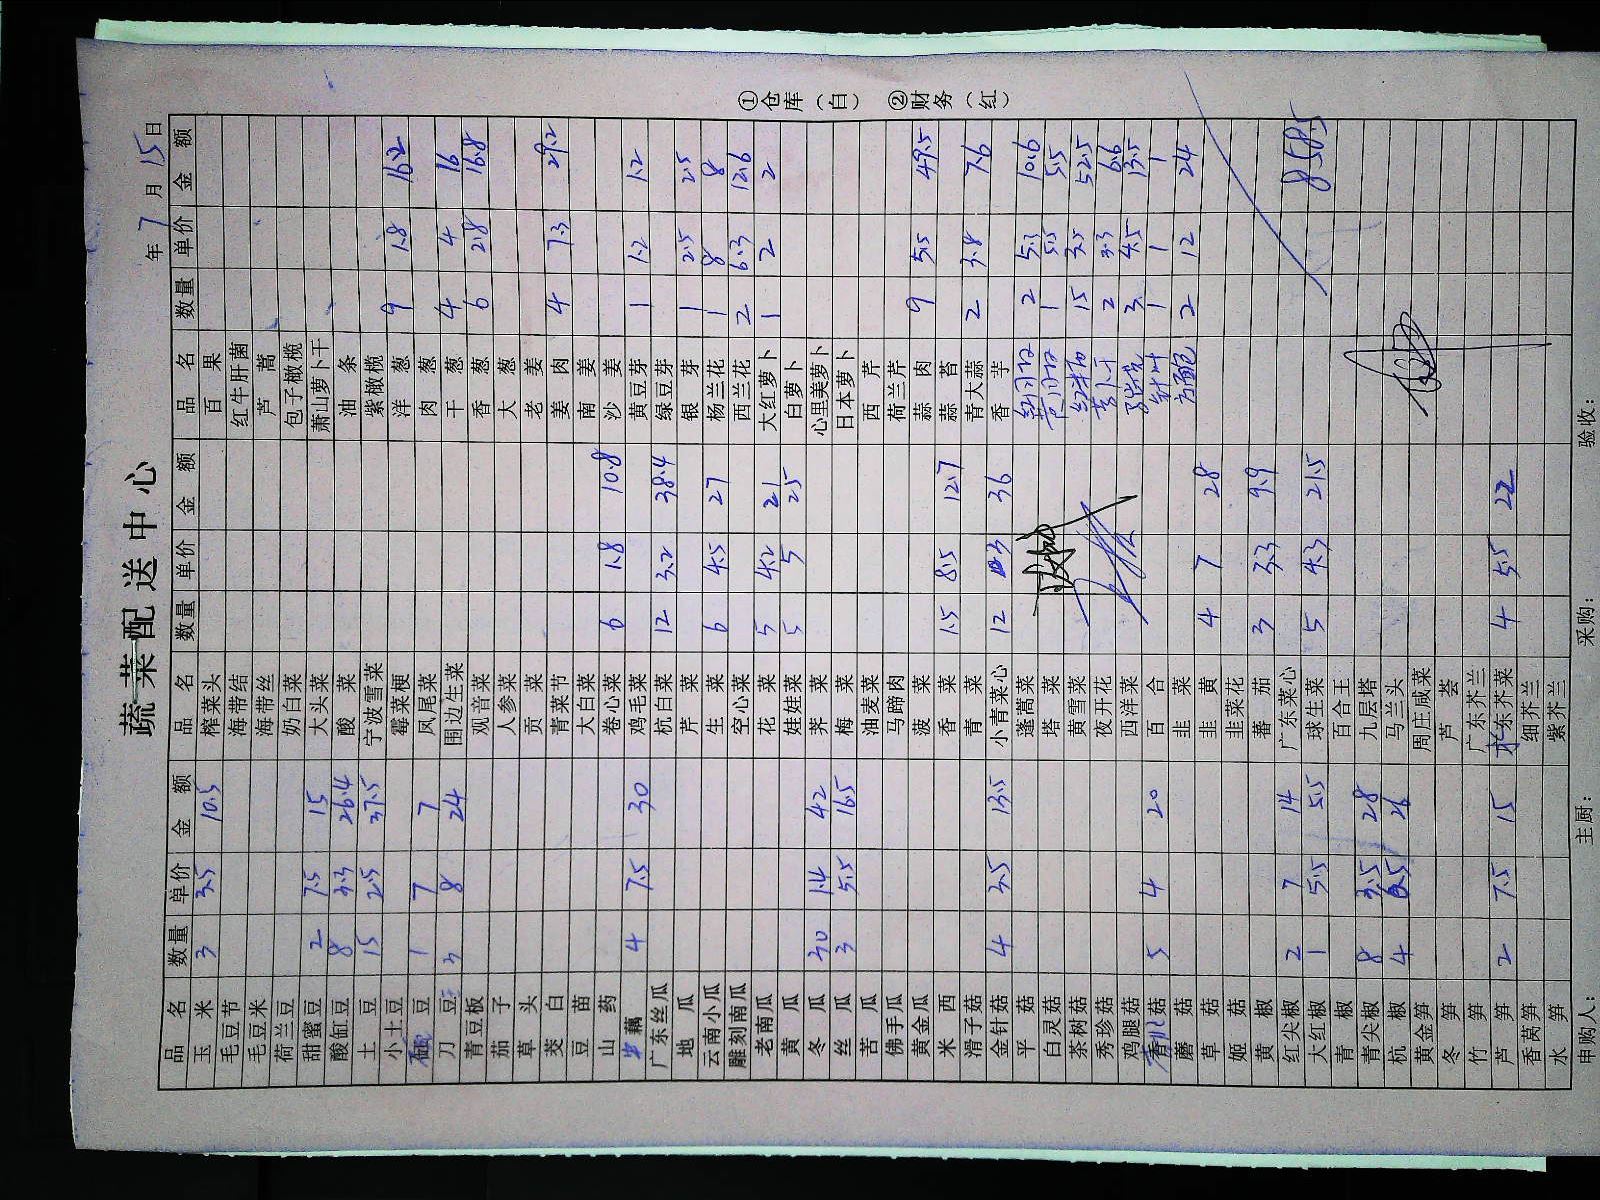 蔬菜配送中心
年 7 月 15 日
品名 数量 单价 金额 品名 数量 单价 金额 品名 数量 单价 金额
玉米 3 3.5 10.5 榨菜头 百果
毛豆节 海带结 红牛肝菌
毛豆米 海带丝 芦蒿
荷兰豆 奶白菜 包子橄榄
甜蜜豆 2 7.5 15 大头菜 萧山萝卜干
酸缸豆 8 3.3 26.4 酸菜 油条
土豆 15 2.5 37.5 宁波雪菜 紫橄榄
小土豆 霉菜梗 洋葱 9 1.8 16.2
豆 1 7 7 凤尾菜 肉葱
刀豆 3 8 24 围边生菜 干葱 4 4 16
青豆板 观音菜 香葱 6 2.8 16.8
茄子 人参菜 大葱
草头 贡菜 老姜
茭白 青菜节 姜肉 4 7.3 29.2
豆苗 大白菜 南姜
山药 卷心菜 6 1.8 10.8 沙姜
藕 4 7.5 30 鸡毛菜 黄豆芽 1 1.2 1.2
广东丝瓜 杭白菜 12 3.2 38.4 绿豆芽
地瓜 芹菜 银芽 1 2.5 2.5
云南小瓜 生菜 6 4.5 27 杨兰花 1 8 8
雕刻南瓜 空心菜 西兰花 2 6.3 12.6
老南瓜 花菜 5 4.2 21 大红萝卜 1 2 2
黄瓜 娃娃菜 5 5 25 白萝卜
冬瓜 30 1.4 42 荠菜 心里美萝卜
丝瓜 3 5.5 16.5 梅菜 日本萝卜
苦瓜 油麦菜 西芹
佛手瓜 马蹄肉 荷兰芹
黄金瓜 菠菜 蒜肉 9 5.5 49.5
米西 香菜 1.5 8.5 12.7 蒜苔
滑子菇 青菜 青大蒜 2 3.8 7.6
金针菇 4 3.5 13.5 小青菜心 12 3 36 香芋
平菇 蓬蒿菜 2 5.3 10.6
白灵菇 塔菜 1 5.5 5.5
茶树菇 黄雪菜 15 3.5 52.5
秀珍菇 夜开花 2 3.3 6.6
鸡腿菇 西洋菜 3 4.5 13.5
香菇 5 4 20 百合 1 1 1
蘑菇 韭菜 2 12 24
草菇 韭黄 4 7 28
姬菇 韭菜花
黄椒 蕃茄 3 3.3 9.9
红尖椒 2 7 14 广东菜心
大红椒 1 5.5 5.5 球生菜 5 4.3 21.5 858.5
青椒 百合王
青尖椒 8 3.5 28 九层塔
杭椒 4 6.5 26 马兰头
黄金笋 周庄咸菜
冬笋 芦荟
竹笋 广东芥兰
芦笋 2 7.5 15 东芥菜 4 5.5 22
香莴笋 细芥兰
水笋 紫芥兰
申购人： 主厨： 采购： 验收：
①仓库（白） ②财务（红）